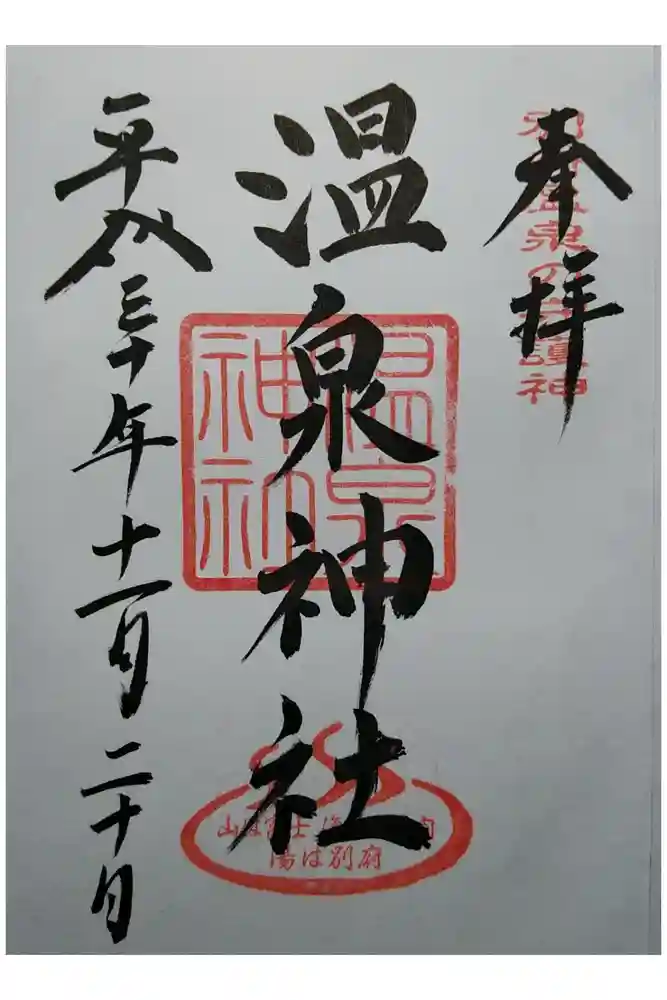 奉拝
別府温泉の守護神
温泉神社
温泉神社
山は富士 海は瀬戸内
湯は別府
平成三十年十一月二十日